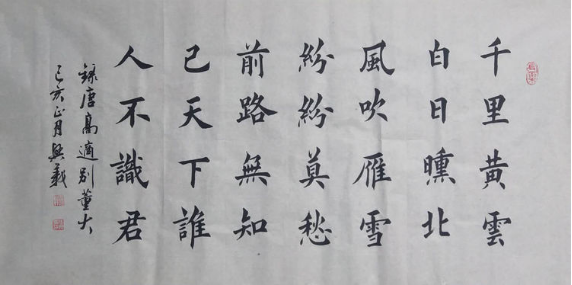 千里黃雲
白日曛北
風吹雁雪
紛紛莫愁
前路無知
己天下誰
人不識君
錄唐高適別董大
己亥正月興義